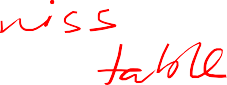 niss
table